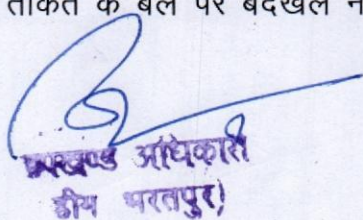 ताकत के बल पर बेदखल न
उपखण्ड अधिकारी
डीग भरतपुर)